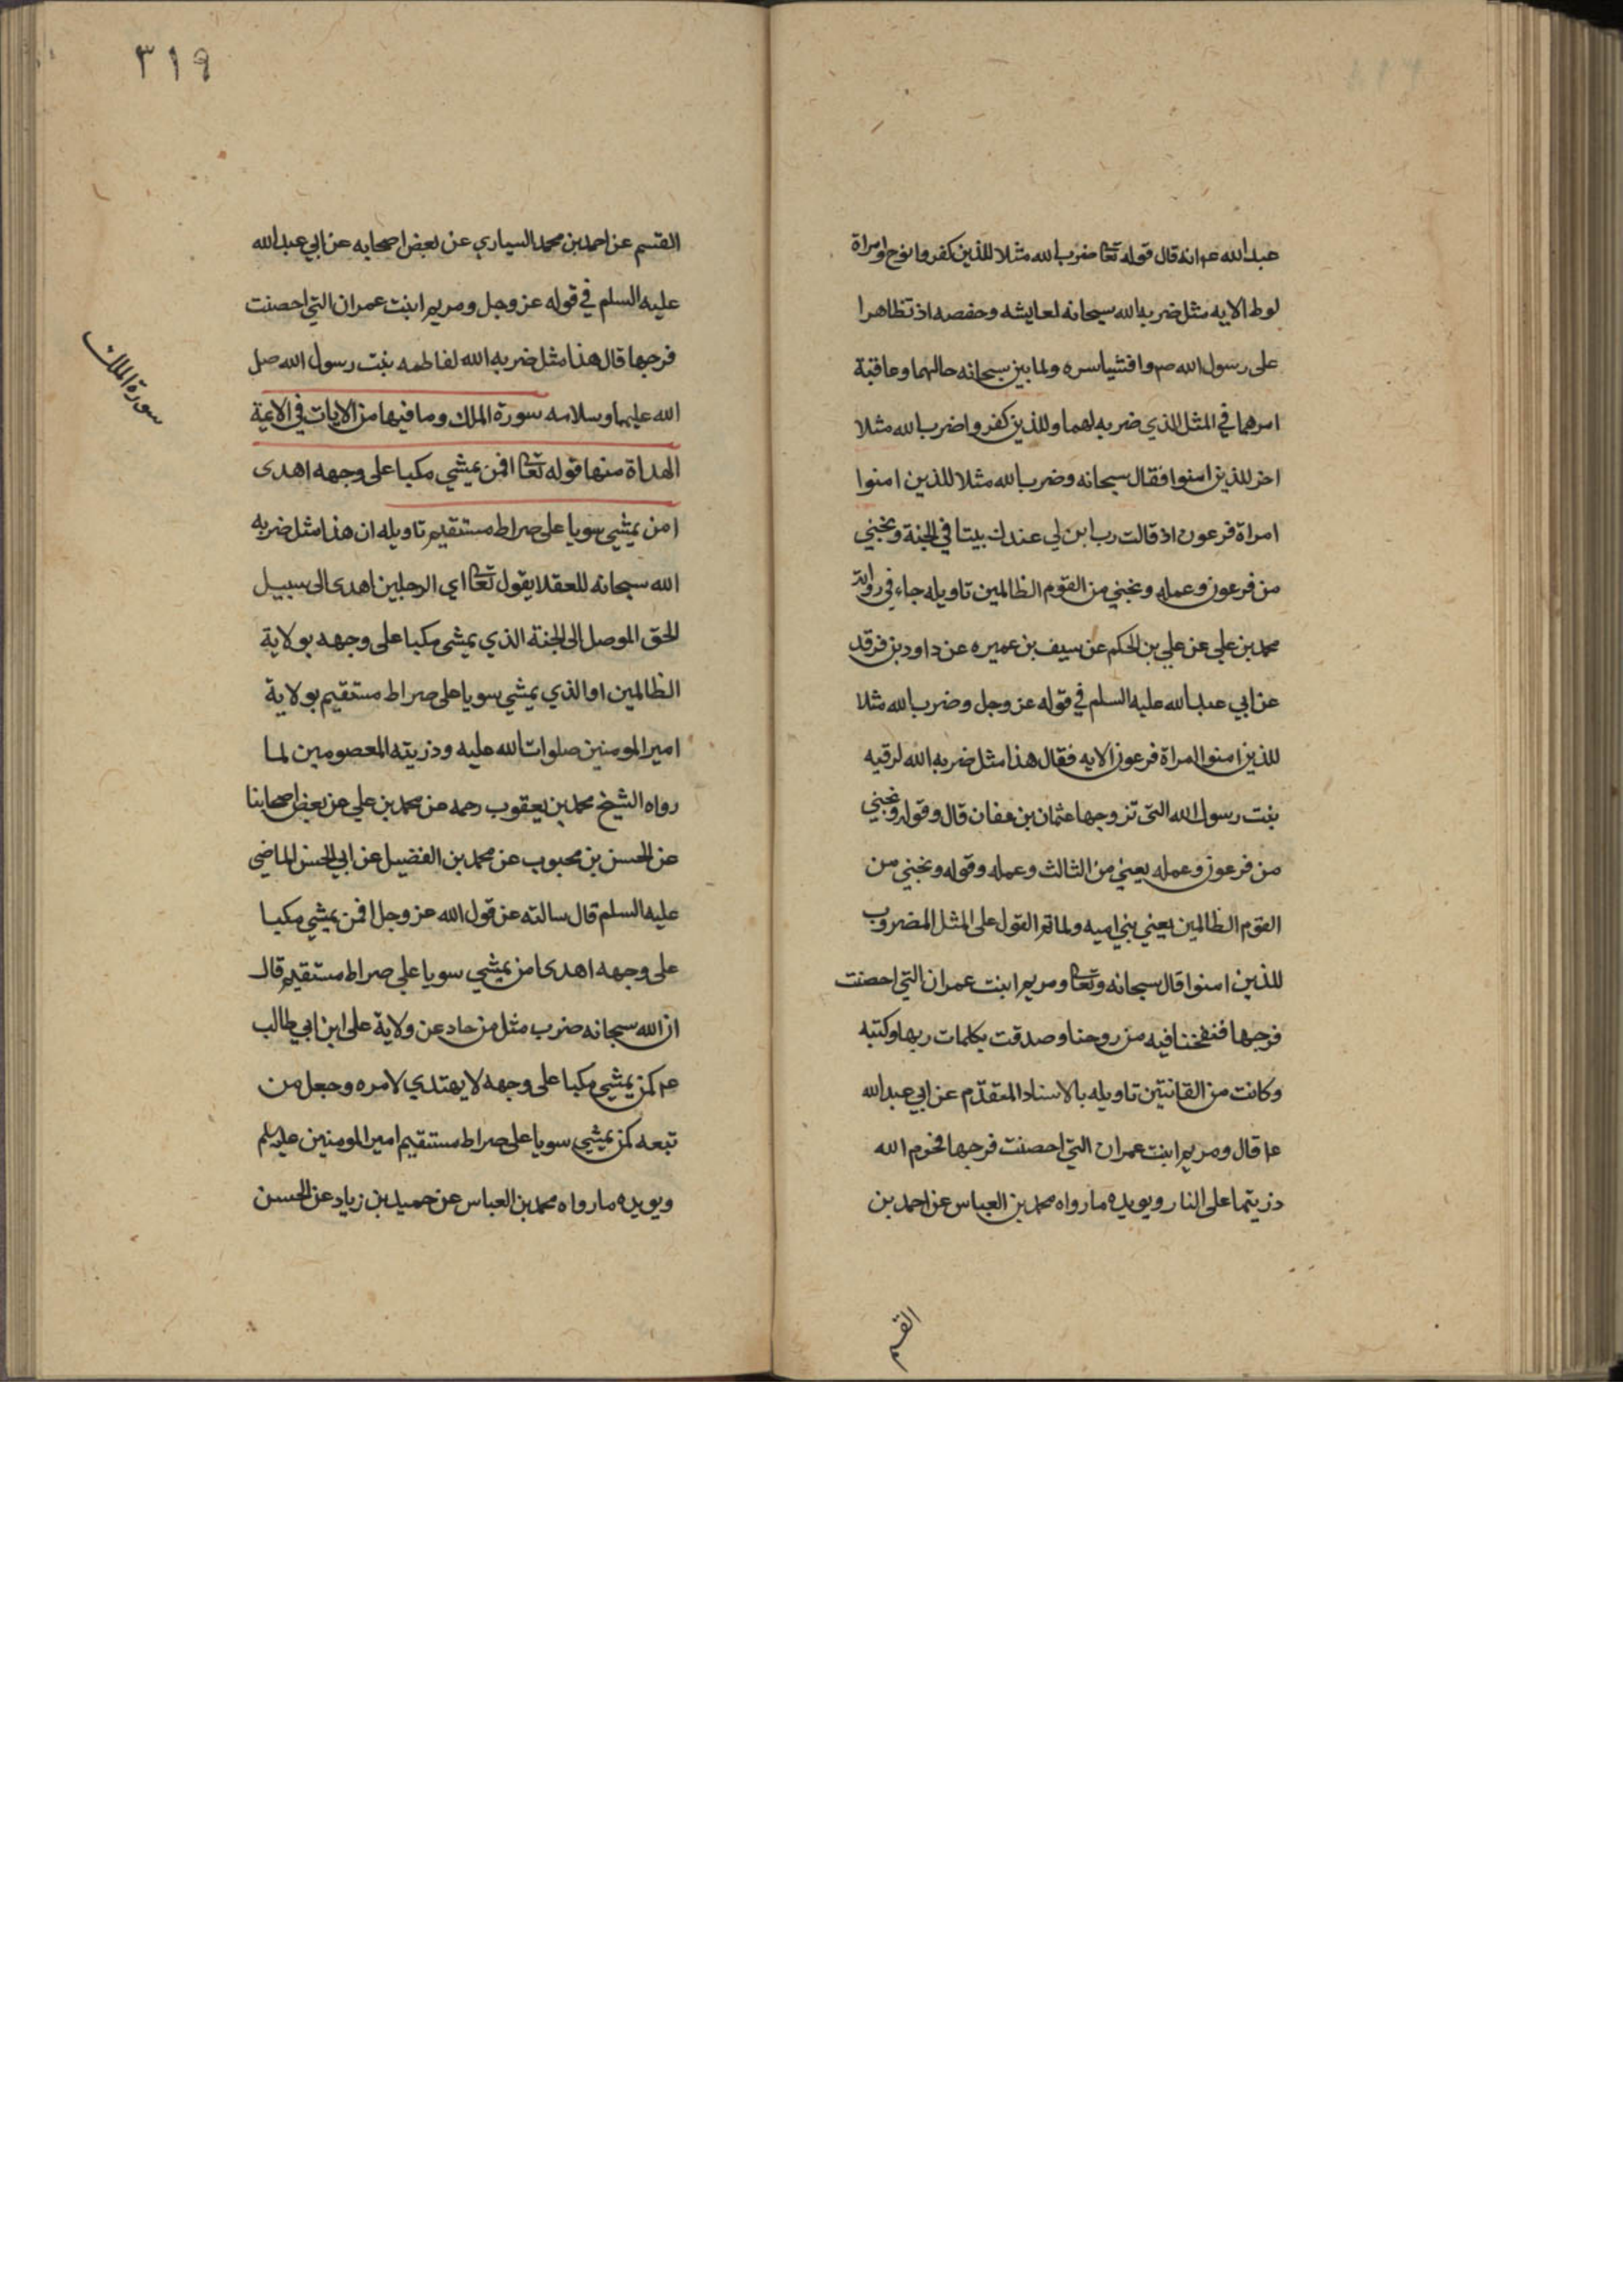 عبد الله عم انه قال قوله تعا ضرب الله مثلا للذين كفروا نوح وامراة
لوط الايه مثل ضربه الله سبحانه لعايشه وحفصه اذ تظاهرا
على رسول الله صم وافشيا سره ولما بين سبحانه حالهما وعاقبة
امرهما في المثل الذي ضربه لهما وللذين كفروا ضرب الله مثلا
اخر للذين امنوا فقال سبحانه وضرب الله مثلا للذين امنوا
امراة فرعون اذ قالت رب ابن لي عندك بيتا في الجنة ونجني
من فرعون وعمله ونجني من القوم الظالمين تاويله جاء في رواية
محمد بن علي عن علي بن الحكم عن سيف بن عميره عن داود بن فرقد
عن ابي عبد الله عليه السلم في قوله عز وجل وضرب الله مثلا
للذين امنوا امراة فرعون الايه فقال هذا مثل ضربه الله لرقيه
بنت رسول الله التى تزوجها عثمان بن عفان قال وقوله ونجني
من فرعون وعمله يعني من الثالث وعمله وقوله ونجني من
القوم الظالمين يعني بني اميه ولما تم القول على المثل المضروب
للذين امنوا قال سبحانه وتعا ومريم ابنت عمران التي احصنت
فرجها فنفخنا فيه من روحنا وصدقت بكلمات ربها وكتبه
وكانت من القانتين تاويله بالاسناد المتقدم عن ابي عبد الله
عم قال ومريم ابنت عمران التي احصنت فرجها فحرم الله
ذريتها على النار ويويده ما رواه محمد بن العباس عن احمد بن
القسم
٣١٩
القسم عن احمد بن محمد السياري عن بعض اصحابه عن ابي عبد الله
عليه السلم في قوله عز وجل ومريم ابنت عمران التي احصنت
فرجها قال هذا مثل ضربه الله لفاطمه بنت رسول الله صل
الله عليهما وسلامه سورة الملك وما فيها من الايات في الائمة
الهداة منها قوله تعا افمن يمشي مكبا على وجهه اهدى
امن يمشي سويا على صراط مستقيم تاويله ان هذا مثل ضربه
الله سبحانه للعقلا يقول تعا اي الرجلين اهدى الى سبيل
الحق الموصل الى الجنة الذي يمشى مكبا على وجهه بولاية
الظالمين او الذي يمشي سويا على صراط مستقيم بولاية
امير المومنين صلوات الله عليه وذريته المعصومين لما
رواه الشيخ محمد بن يعقوب رحمه عن محمد بن علي عن بعض اصحابنا
عن الحسن بن محبوب عن محمد بن الفضيل عن ابي الحسن الماضي
عليه السلم قال سالته عن قول الله عز وجل افمن يمشي مكبا
على وجهه اهدى امن يمشي سويا على صراط مستقيم قال
ان الله سبحانه ضرب مثل من حاد عن ولاية على ابن ابي طالب
عم كمن يمشي مكبا على وجهه لا يهتدي لامره وجعل من
تبعه كمن يمشي سويا على صراط مستقيم امير المومنين عليه سلم
ويويده ما رواه محمد بن العباس عن حميد بن زياد عن الحسن
سورة الملك